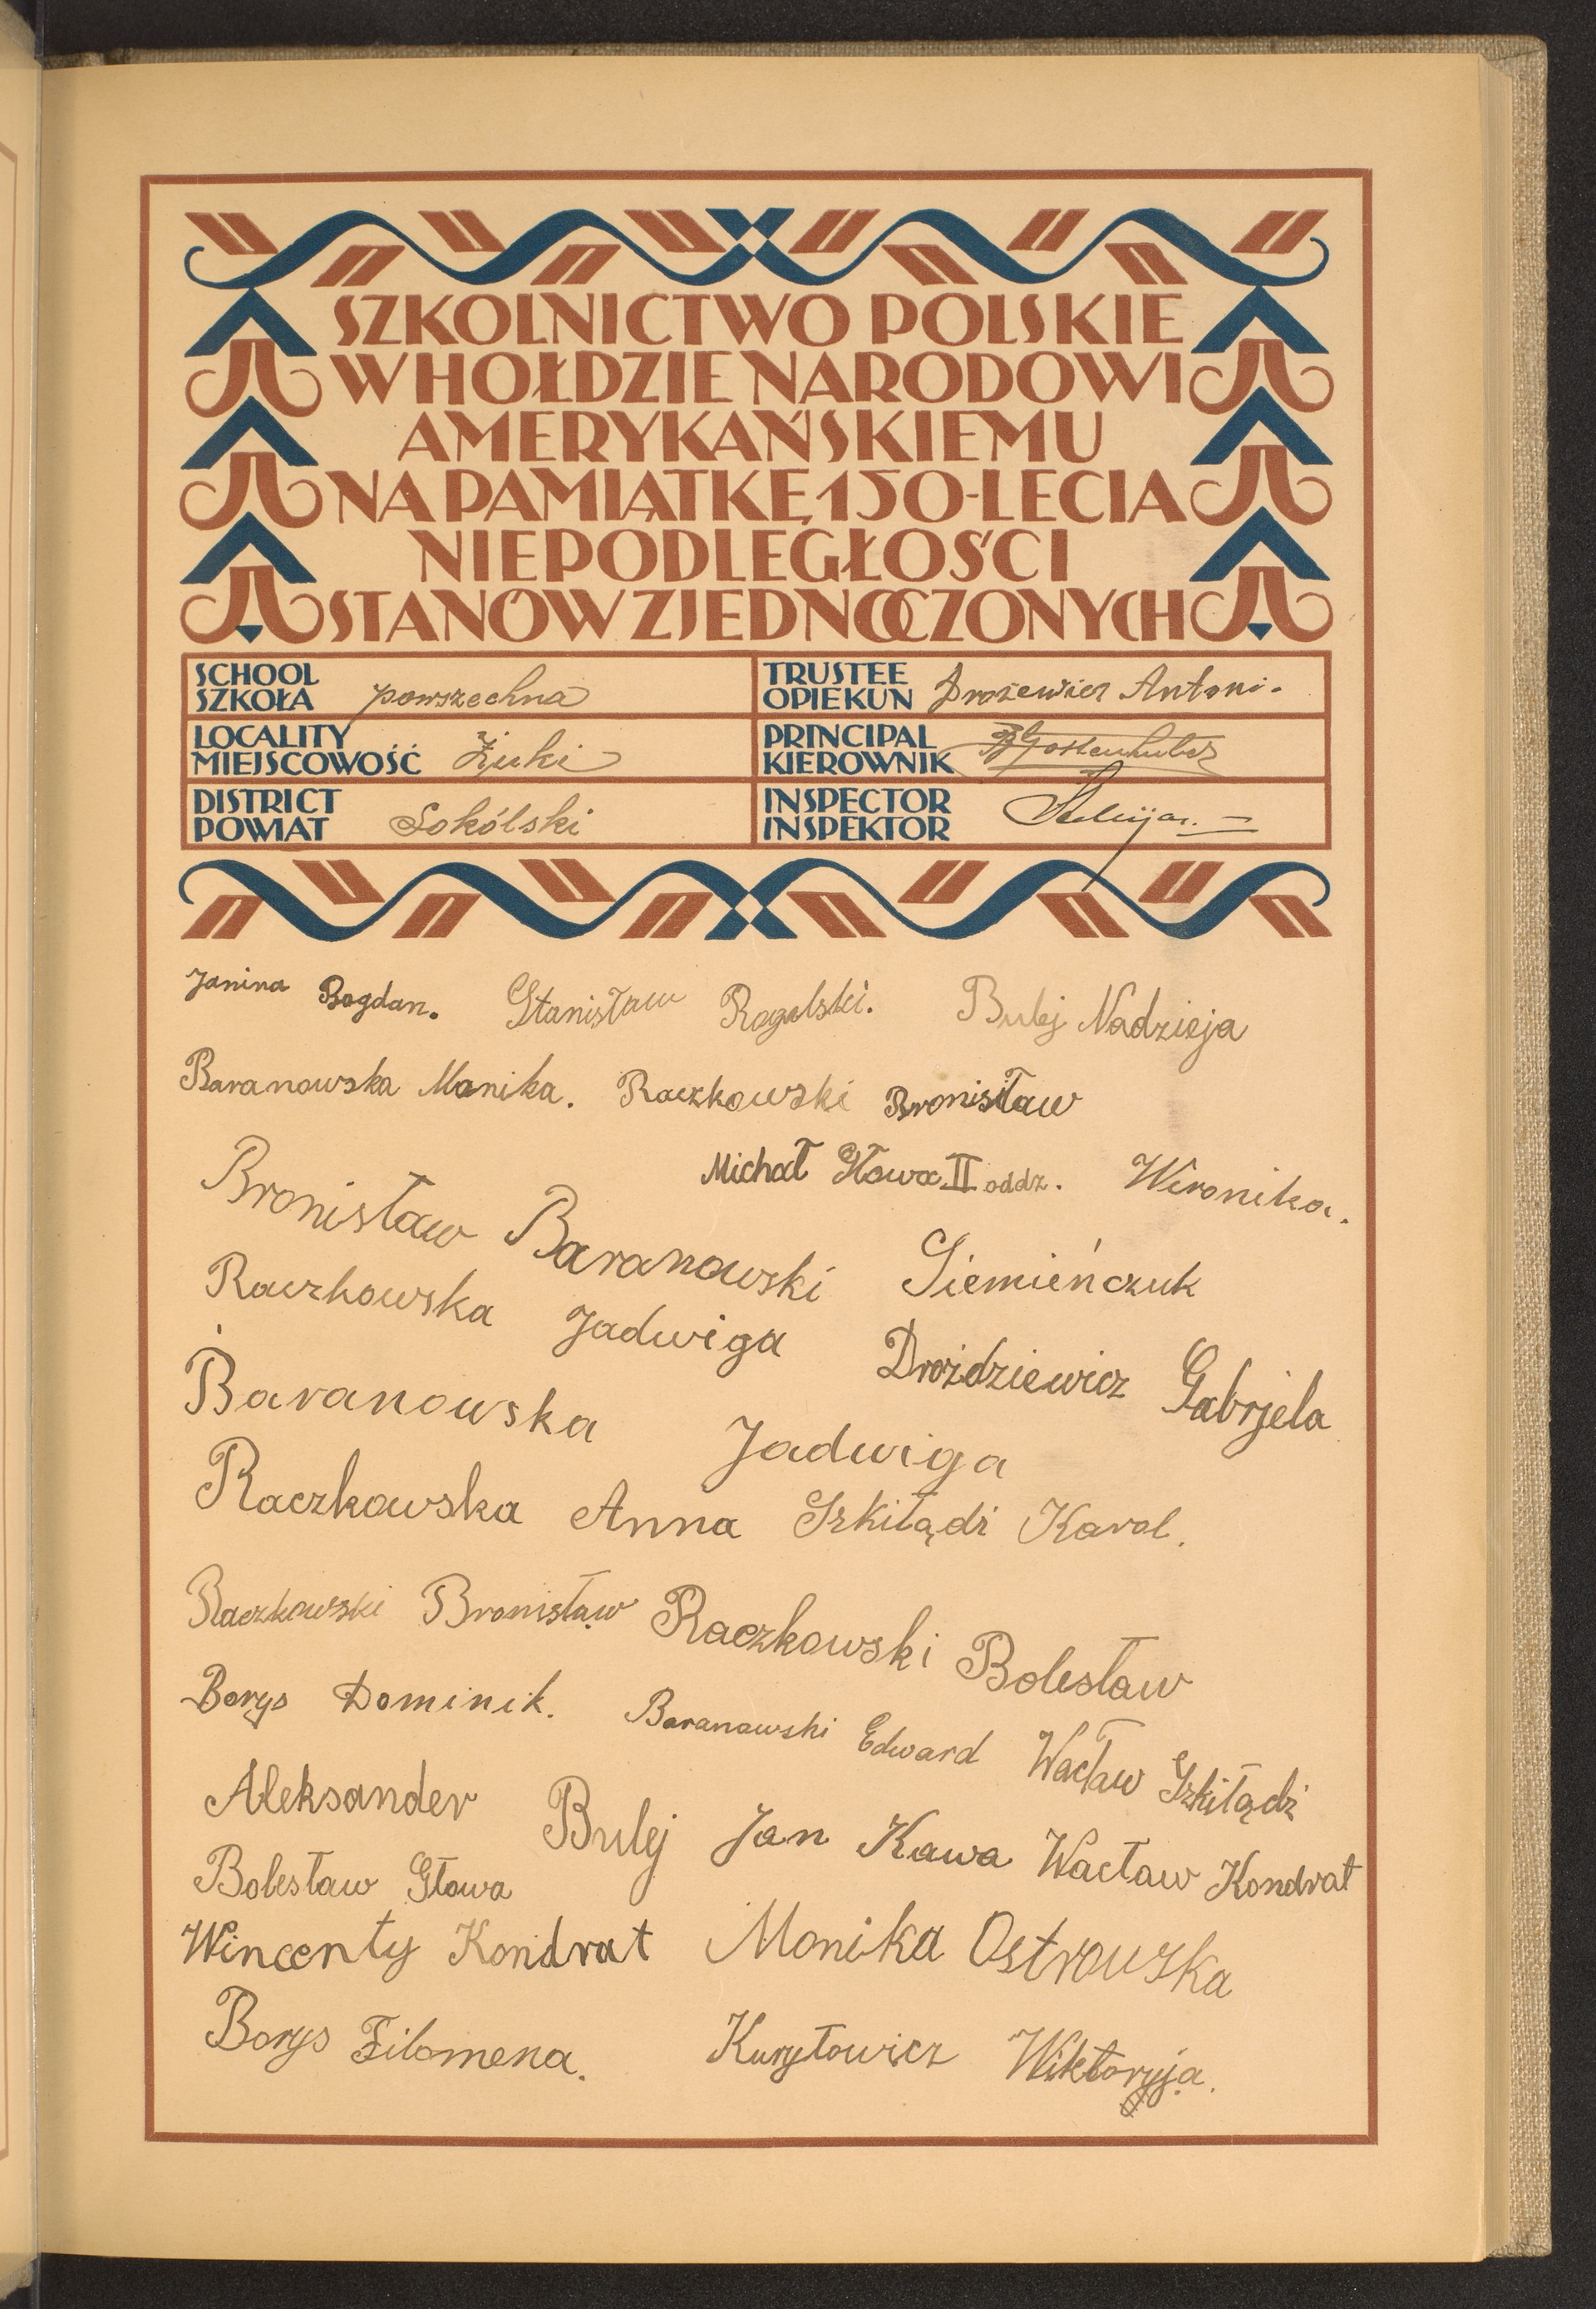 SZKOLNICTWO POLSKIE
W HOŁDZIE NARODOWI
AMERYKAŃSKIEMU
NA PAMIĄTKĘ 150-LECIA
NIEPODLEGŁOŚCI
STANÓW ZJEDNOCZONYCH
SCHOOL
SZKOŁA powszechna
TRUSTEE
OPIEKUN Drożewicz Antoni.
LOCALITY
MIEJSCOWOŚĆ Żuki
PRINCIPAL
KIEROWNIK
DISTRICT
POWIAT Sokólski
INSPECTOR
INSPEKTOR
Janina Bogdan. Stanisław Rogalski. Bulej Nadzieja
Baranowska Monika. Raczkowski Bronisław
Michał Głowa II oddz. Wironika.
Bronisław Baranowski Siemieńczuk
Raczkowska Jadwiga Droździewicz Gabrjela
Baranowska Jadwiga
Raczkowska Anna Szkiłądź Karol.
Raczkowski Bronisław Raczkowski Bolesław
Borys Dominik. Baranowski Edward Wacław Szkiłądź
Aleksander Bulej Jan Kawa Wacław Kondrat
Bolesław Głowa
Wincenty Kondrat Monika Ostrowska
Borys Filomena. Kuryłowicz Wiktoryja.